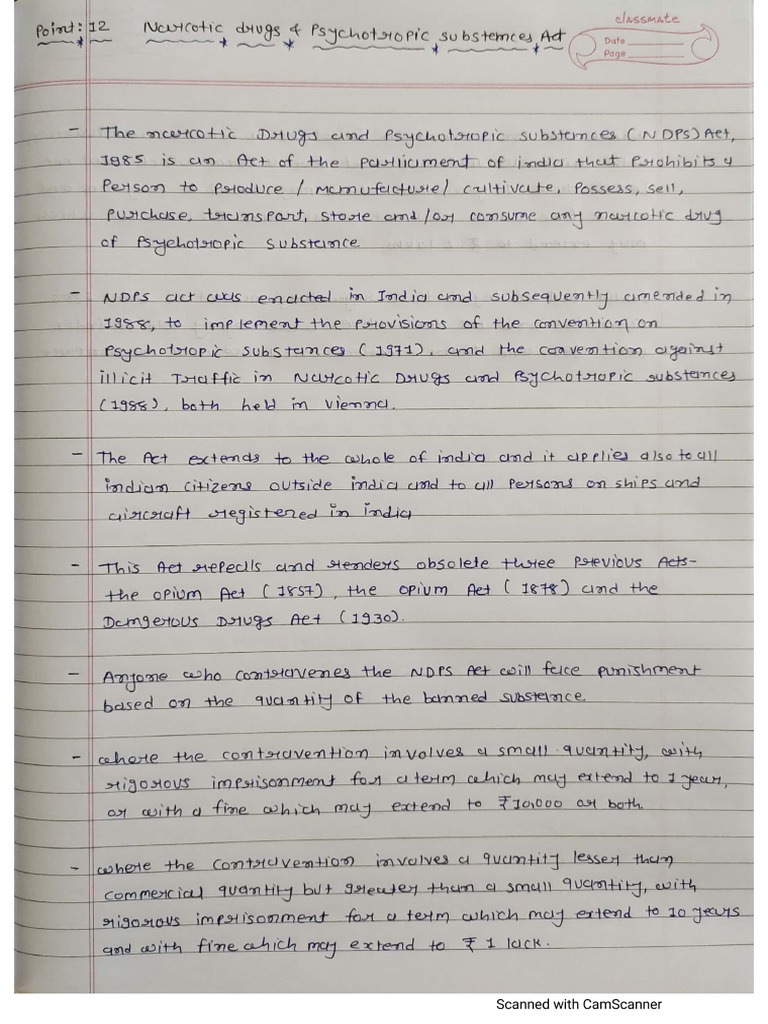 classmate
Date
Page
Point: 12 Narcotic drugs & Psychotropic substances Act
- The narcotic Drugs and Psychotropic substances (NDPS) Act,
1985 is an Act of the parliament of india that Prohibits a
Person to Produce / manufacture/ cultivate, Possess, sell,
purchase, transport, store and /or consume any narcotic drug
of Psychotropic substance
- NDPS act was enacted in India and subsequently amended in
1988, to implement the provisions of the convention on
Psychotropic substances (1971), and the convention against
illicit Traffic in Narcotic Drugs and Psychotropic substances
(1988), both held in vienna.
- The Act extends to the whole of india and it applies also to all
indian citizens outside india and to all persons on ships and
aircraft registered in india
- This Act repealls and renders obsolete three previous Acts-
the opium Act (1857), the opium Act (1878) and the
Dangerous Drugs Act (1930).
- Anyone who contravenes the NDPS Act will face punishment
based on the quantity of the banned substance.
- where the contravention involves a small quantity, with
rigorous imprisonment for a term which may extend to 1 year,
or with a fine which may extend to ₹10,000 or both.
- where the contravention involves a quantity lesser than
commercial quantity but greater than a small quantity, with
rigorous imprisonment for a term which may extend to 10 years
and with fine which may extend to ₹ 1 lack.
Scanned with CamScanner